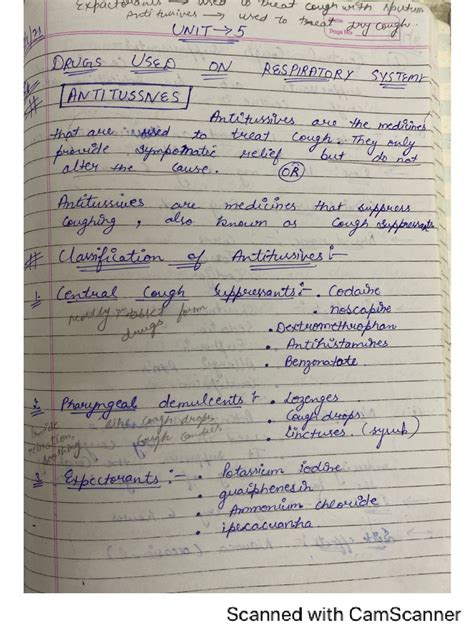 Expectorants → used to treat cough with sputum
Antitussives → used to treat dry cough.
Page No.
UNIT → 5
DRUGS USED ON RESPIRATORY SYSTEM
# ANTITUSSIVES
Antitussives are the medicines
that are used to treat cough. They only
provide symptomatic relief but do not
alter the cause.
OR
Antitussives are medicines that suppress
coughing, also known as cough suppressants
# Classification of Antitussives :-
1. Central Cough Suppressants :- • Codaine
mostly tablet form • noscapine
drugs • Dextromethrophan
• Antihistamines
• Benzonatate.
2. Pharyngeal demulcents :- • Lozenges
like cough drops, • Cough drops.
cough candies • linctuses. (syrup)
soothing
3. Expectorants :- • Potassium iodine
• guaiphenesin
• Ammonium chloride
• ipecacuanha
Scanned with CamScanner